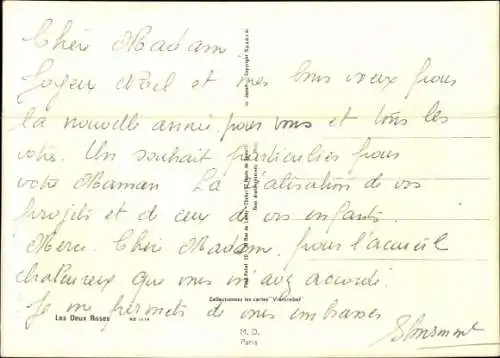 Chère Madame
Joyeux Noël et mes bons vœux pour
la nouvelle année. pour vous et tous les
votres. Un souhait particulier pour
votre Maman La réalisation de vos
projets et de ceux de vos enfants.
Merci. Chère Madame, pour l'accueil
chaleureux que vous m'avez accordé.
Je me permets de vous embrasser
Collectionnez les cartes
Les Deux Roses
M. D.
Paris